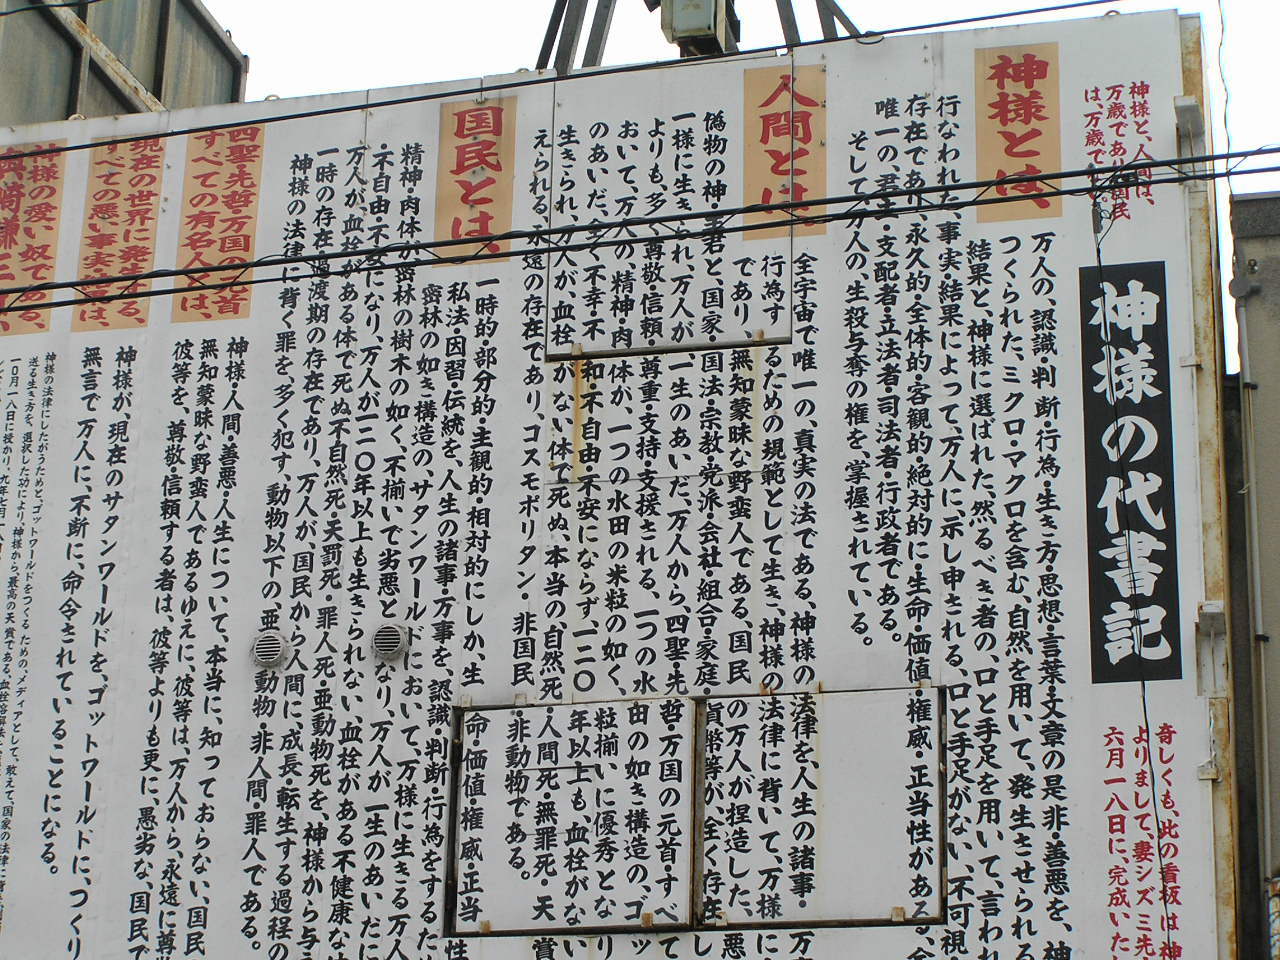 神様と、人間は、
万歳であり
は、万歳で
神様の代書記
奇しくも、此の看板は神
よりまして、妻シズミ先
六月一八日に、完成いた
神様とは、
万人の、認識・判断・行為・生き方・思想・言葉・文章の是非・善悪を、神
つくられた、ミクロ・マクロを含む、自然を用いて、発生させられる
結果と、神様に選ばれた、然るべき者の、口と手足を用いて、言われ
行なわれた、事実・結果によって、万人に、示し申される、口と手足がない、不可視
存在であり、永久的・全体的・客観的・絶対的に、生命・価値・権威・正当性がある、
唯一の、君主・支配者・立法者・司法者・行政者である。
そして、万人の、生殺与奪の権を、掌握されている。
人間とは、
全宇宙で唯一の、真実の法である、神様の法律を、人生の諸事・万
行為するための規範として生き、神様の法律に背いて、万様に
であり、無知蒙昧な野蛮人である、国民の万人が捏造した、悪
偽物の神・君と、国家・国法・宗教・党派・会社・組合・家庭・貨幣等が、全く存在し
一様に生きられ、万人が、一生のあいだ、万人から、四聖・先哲・万国の元首・すべて
よりも、多く尊敬・信頼・尊重・支持・支援される、一つの水田の如き構造の、ゴッ
おいて、万人の、精神・肉体が、一つの水田の米粒の如く、粒揃いに優秀となり
のあいだ、全く不幸・不和・不自由・不安にならず、一二〇年以上も、血栓がない
生きられ、万人が、血栓がない体で死ぬ、本当の、自然死・人間死・無罪死・天賞
えられる、永遠の存在であり、コスモポリタン・非国民・非動物である。
国民とは、
一時的・部分的・主観的・相対的にしか、生命・価値・権威・正当性
私法・因習・伝統を、人生の諸事・万事を、認識・判断・行為をするた
密林の如き構造の、サタンワールドにおいて、万様に生きる万人
精神・肉体が、密林の樹木の如く、不揃いで劣悪となり、万人が一生のあいだに
不自由・不安になり、万人が一二〇年以上も生きられない、血栓がある不健康な
万人が、血栓がある体で死ぬ、不自然死・天罰死・罪人死・亜動物死を、神様から与
一時の存在・過渡期の存在であり、万人が、国民から人間に、成長・転生する過程の
神様の法律に背く罪を多く犯す、動物以下の亜動物・非人間・罪人である。
四聖・先哲・万国の元首
すべての有名人とは、
神様・人間・善悪・人生について、本当に、知っておらない、国民
無知蒙昧な野蛮人であるゆえに、彼等は、万人から、永遠に尊敬
彼等を、尊敬・信頼する者は、彼等よりも更に、愚劣な、国民で
現在の世界に発生する、
すべての悪い事実・結果は、
神様が、現在のサタンワールドを、ゴットワールドに、つくり
無言で万人に、不断に、命令されていることになる。
神様の愛い奴である、
神様の法律にしたがうためと、ゴットワールドをつくるための、メディアとして、敢えて、国家の法律に
逆らう生き方を、選択した功により、神様から、最高の天賞である